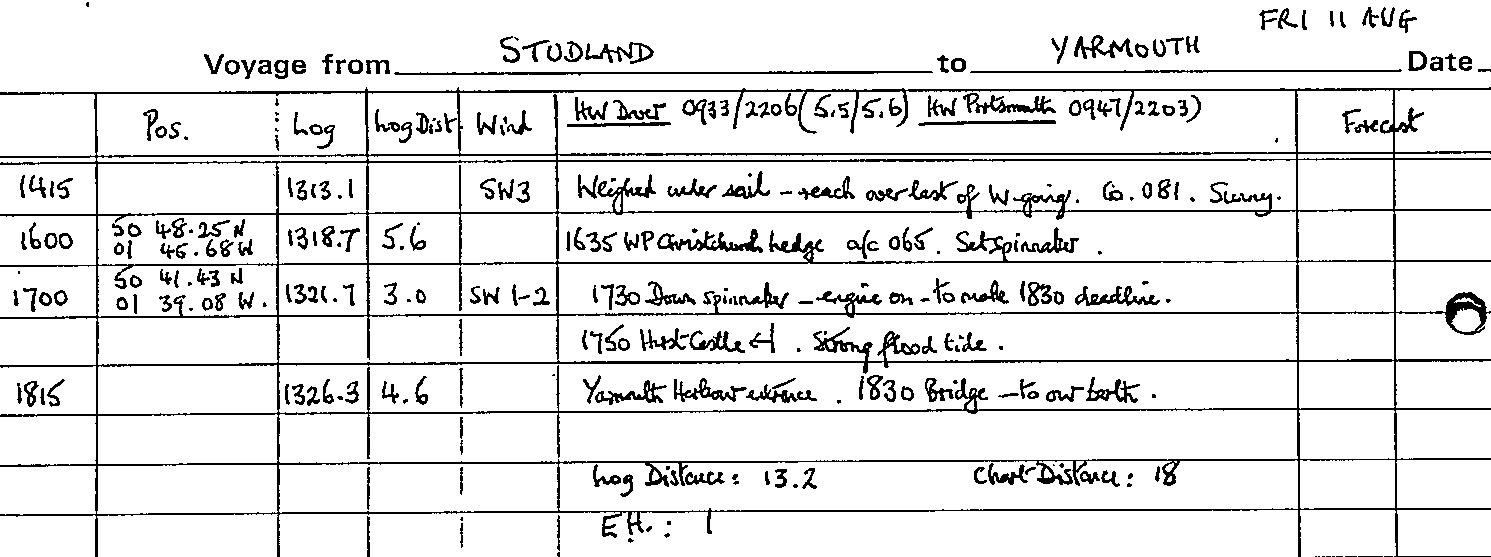 FRI 11 AUG
Voyage from STUDLAND to YARMOUTH Date
Pos. Log Log Dist Wind HW Dover 0933/2206 (5.5/5.6) HW Portsmouth 0947/2203) Forecast
1415 1313.1 SW3 Weighed under sail - reach over last of W-going. Co. 081. Sunny.
1600 50 48.25 N 1318.7 5.6 1635 WP Christchurch Ledge a/c 065. Set Spinnaker.
01 45.68 W
1700 50 41.43 N 1321.7 3.0 SW 1-2 1730 Down spinnaker - engine on - to make 1830 deadline.
01 39.08 W.
1750 Hurst Castle . Strong flood tide.
1815 1326.3 4.6 Yarmouth Harbour entrance. 1830 Bridge - to our berth.
Log Distance: 13.2 Chart Distance: 18
E.H.: 1